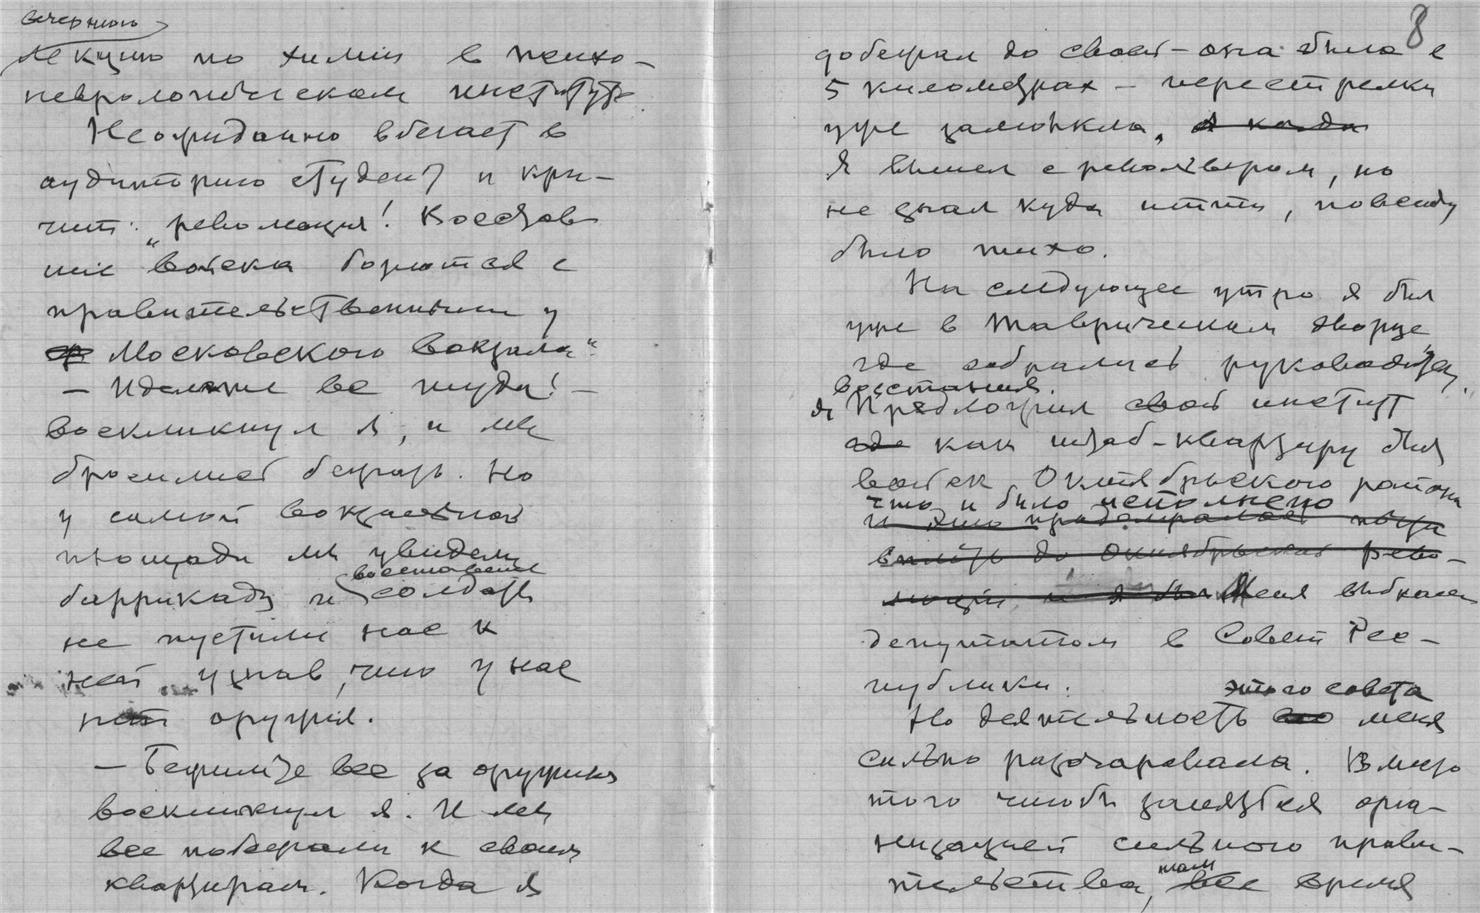 вечернюю
лекцию по химии в психо-
неврологическом институте
Неожиданно вбегает в
аудиторию студент и кри-
чит: „революция! Восстав
шие войска борются с
правительственными у
Московского вокзала“.
— Идемте все туда! —
воскликнул я, и мы
бросились бежать. Но
у самой вокзальной
площади мы увидели
восставшие
баррикаду и солдаты
не пустили нас к
ней узнав, что у нас
нет оружия.
— Бежимте все за оружием
воскликнул я. И мы
все побежали к своим
квартирам. Когда я
8
добежал до своей — она была в
5 километрах — перестрелка
уже замолкла, я когда
Я вышел с револьвером, но
не знал куда итти, повсюду
было тихо.
На следующее утро я был
уже в Таврическом дворце
где собрались руководители
восстания.
Я Предложил свой институт
где как штаб-квартиру для
войск Октябрьского района
что и было исполнено
и это продолжалось
вплоть до октябрьской рево-
люции, и я был Меня выбрали
депутатом в Совет Рес-
публики.
этого совета
Но деятельность его меня
сильно разочаровала. Вместо
того чтобы заняться орга-
низацией сильного прави-
там
тельства, все время